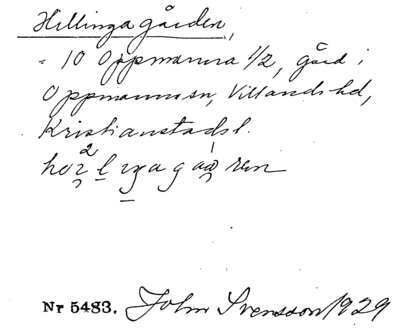 Hillingagården,
= 10 Oppmanna 1/2, gård i
Oppmanna sn, Villands hd,
Kristianstads l.
Nr 5483. John Svensson 1929